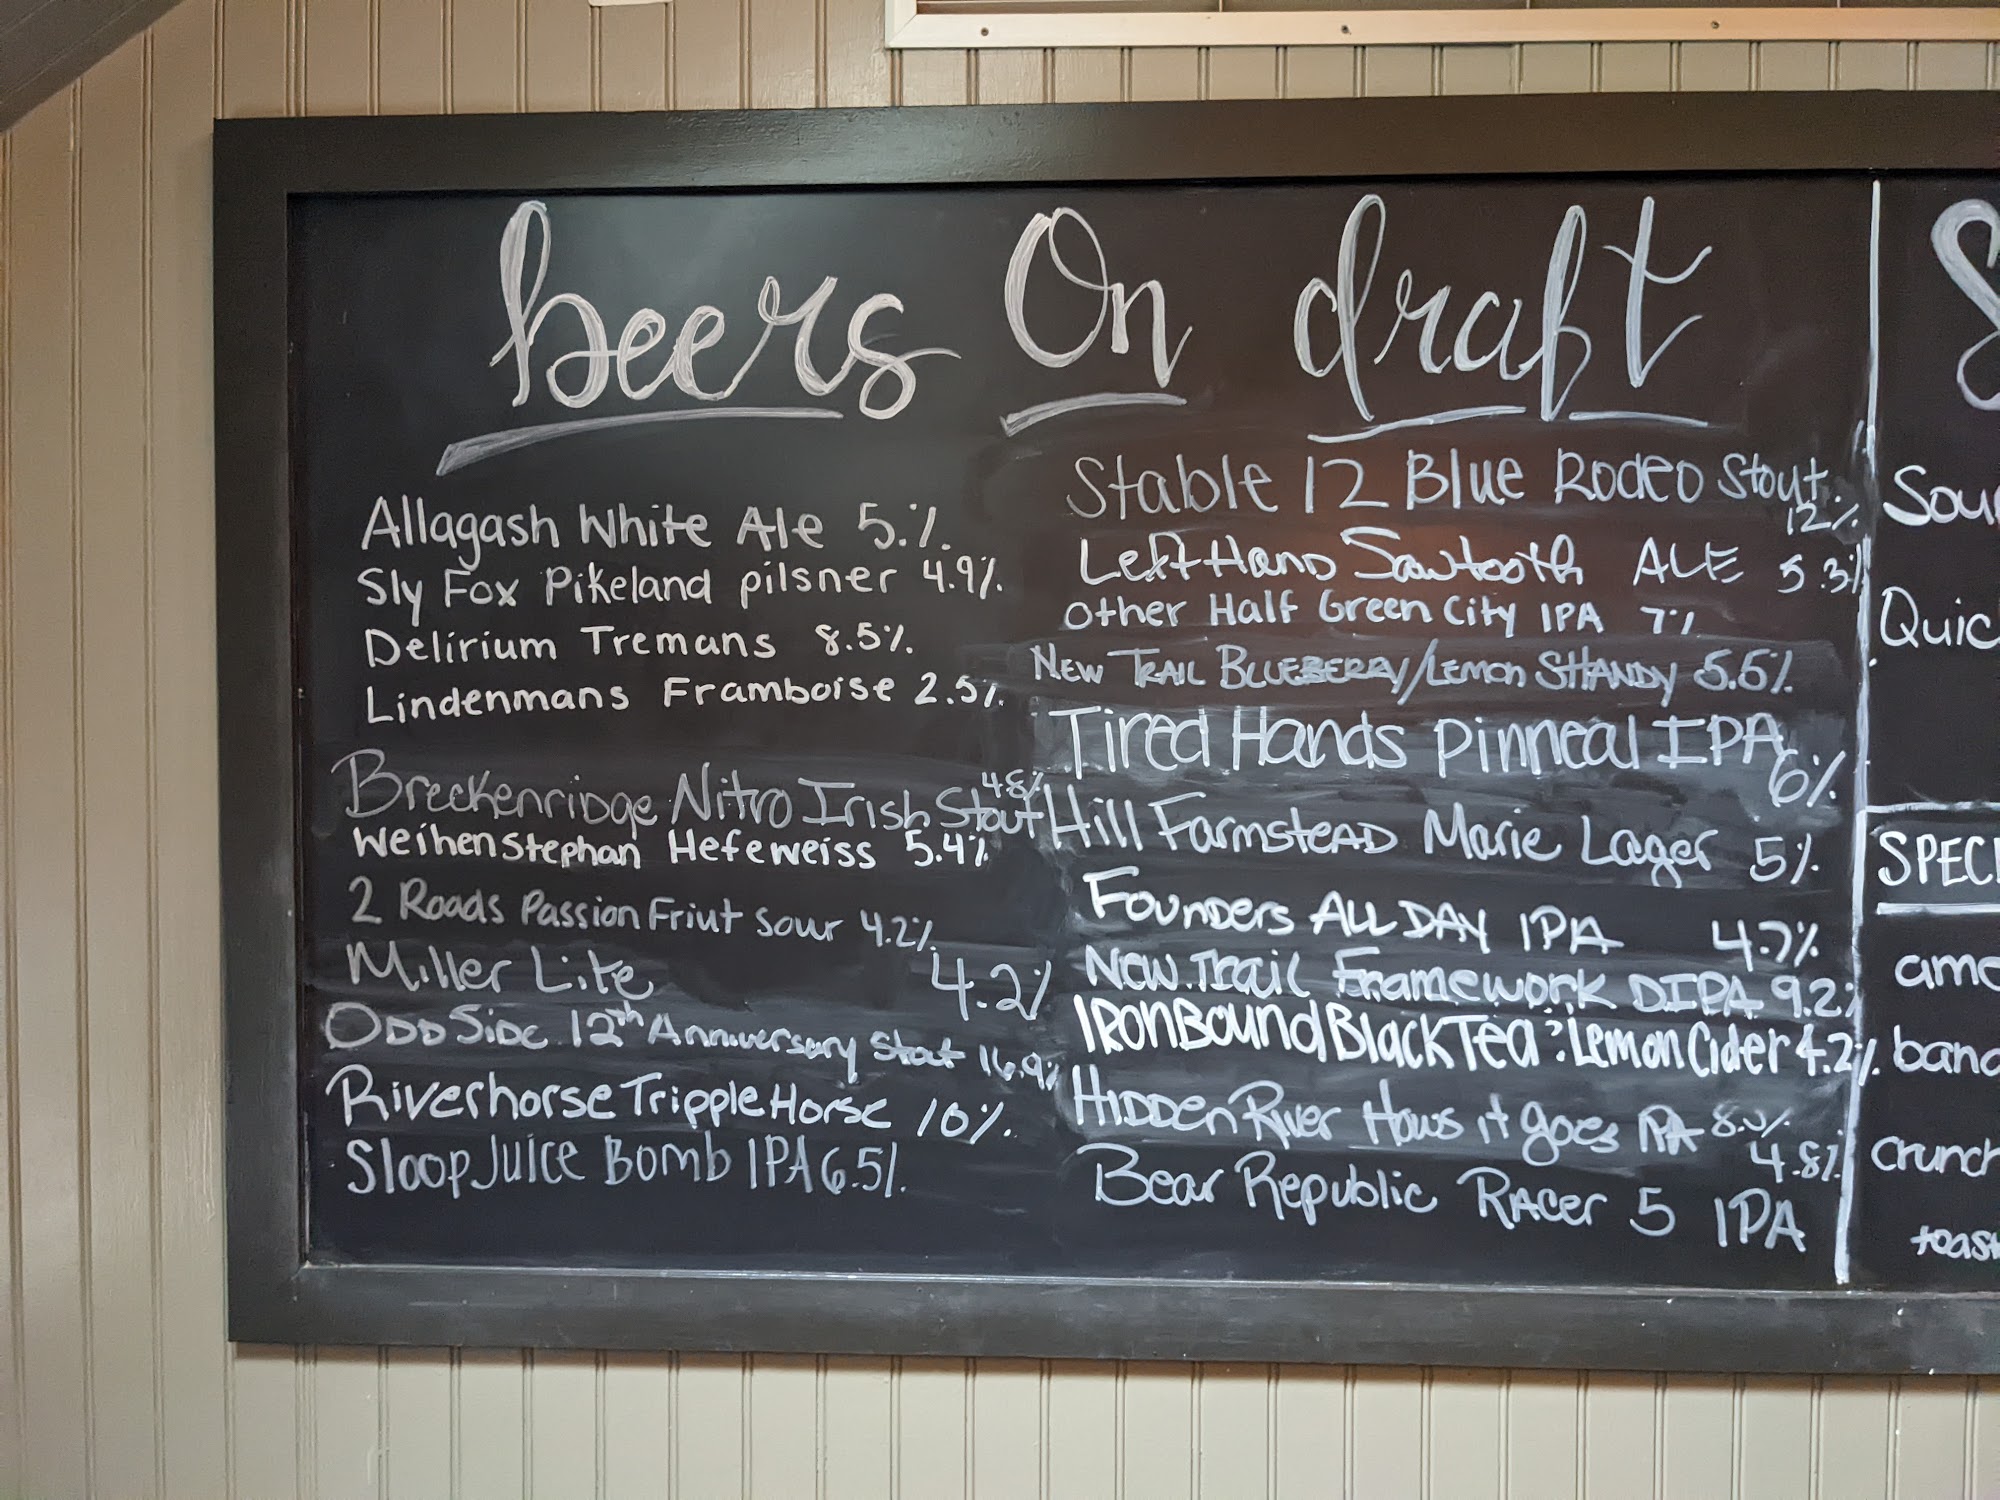 beers On draft
Allagash White Ale 5.%
Sly Fox Pikeland pilsner 4.9%
Delirium Tremans 8.5%
Lindenmans Framboise 2.5%
Breckenridge Nitro Irish Stout 4.8%
Weihenstephan Hefeweiss 5.4%
2 Roads Passion Friut Sour 4.2%
Miller Lite 4.2%
Odd Side 12th Anniversary Stout 16.9%
Riverhorse Tripple Horse 10%
Sloop Juice Bomb IPA 6.5%
Stable 12 Blue Rodeo Stout 12%
Left Hand Sawtooth ALE 5.3%
Other Half Green City IPA 7%
New Trail Blueberry/Lemon SHANDY 5.5%
Tired Hands Pinneal IPA 6%
Hill Farmstead Marie Lager 5%
Founders ALL DAY IPA 4.7%
New Trail Framework DIPA 9.2%
IronBound Black Tea : Lemon Cider 4.2%
Hidden River Hows it goes IPA 8.0%
Bear Republic Racer 5 IPA 4.8%
S
Sou
Quic
SPEC
ame
bana
crunch
toast